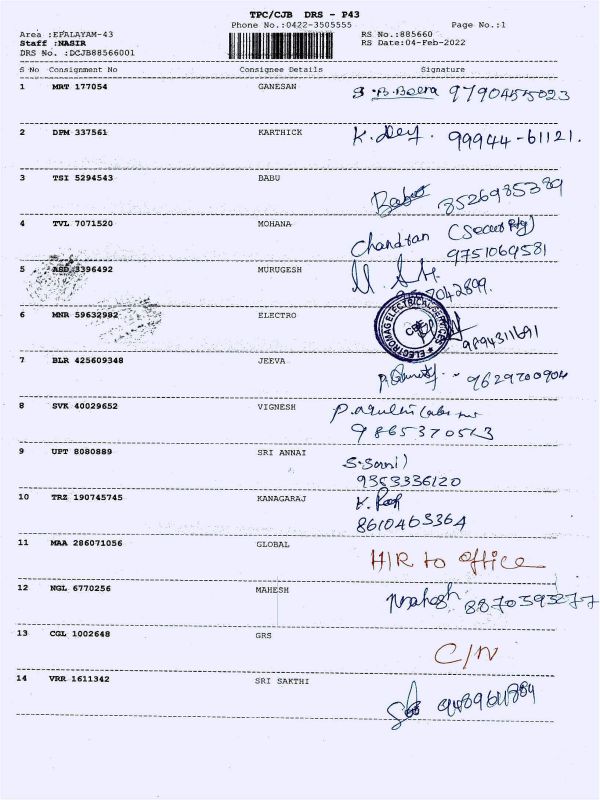 TPC/CJB DRS - P43
Phone No.:0422-3505555 Page No.:1
Area :EPALAYAM-43 RS No.:885660
Staff :NASIR RS Date:04-Feb-2022
DRS No. :DCJB88566001
S No Consignment No Consignee Details Signature
1 MRT 177054 GANESAN 9790455023
2 DPM 337561 KARTHICK K. 99944-61121.
3 TSI 5294543 BABU Babu 8526985389
4 TVL 7071520 MOHANA Chandran (Security)
9751069581
5 ASD 3396492 MURUGESH
6 MNR 59632982 ELECTRO ELECTROMAG ELECTRICAL SERVICES
9894311691
7 BLR 425609348 JEEVA 9629700904
8 SVK 40029652 VIGNESH
9865370513
9 UPT 8080889 SRI ANNAI
9353336120
10 TRZ 190745745 KANAGARAJ K.
8610463364
11 MAA 286071056 GLOBAL H/R to office
12 NGL 6770256 MAHESH Mahesh 8870593277
13 CGL 1002648 GRS C/N
14 VRR 1611342 SRI SAKTHI